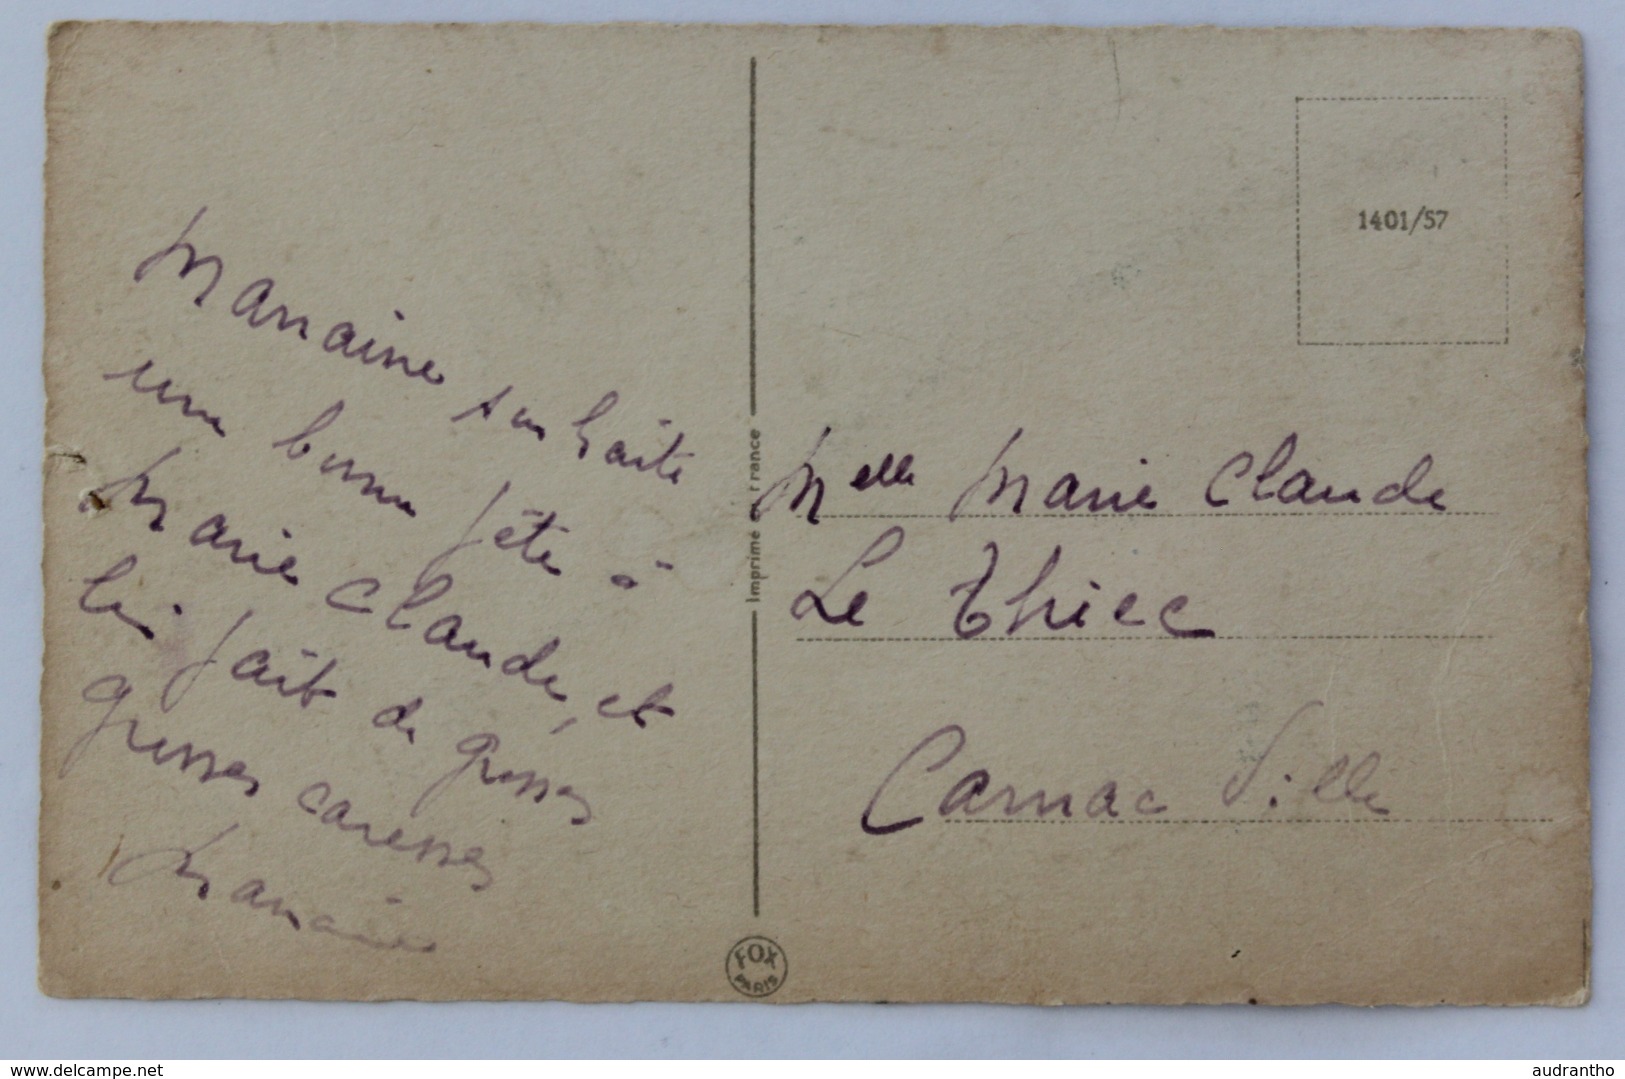 Marraine souhaite
une bonne fête à
Marie Claude, et
lui fait de grosses
grosses caresses
Marraine
Imprimé en France
FOX
PARIS
1401/57
Melle Marie Claude
Le Thiec
Carnac Ville
delcampe.net
audrantho